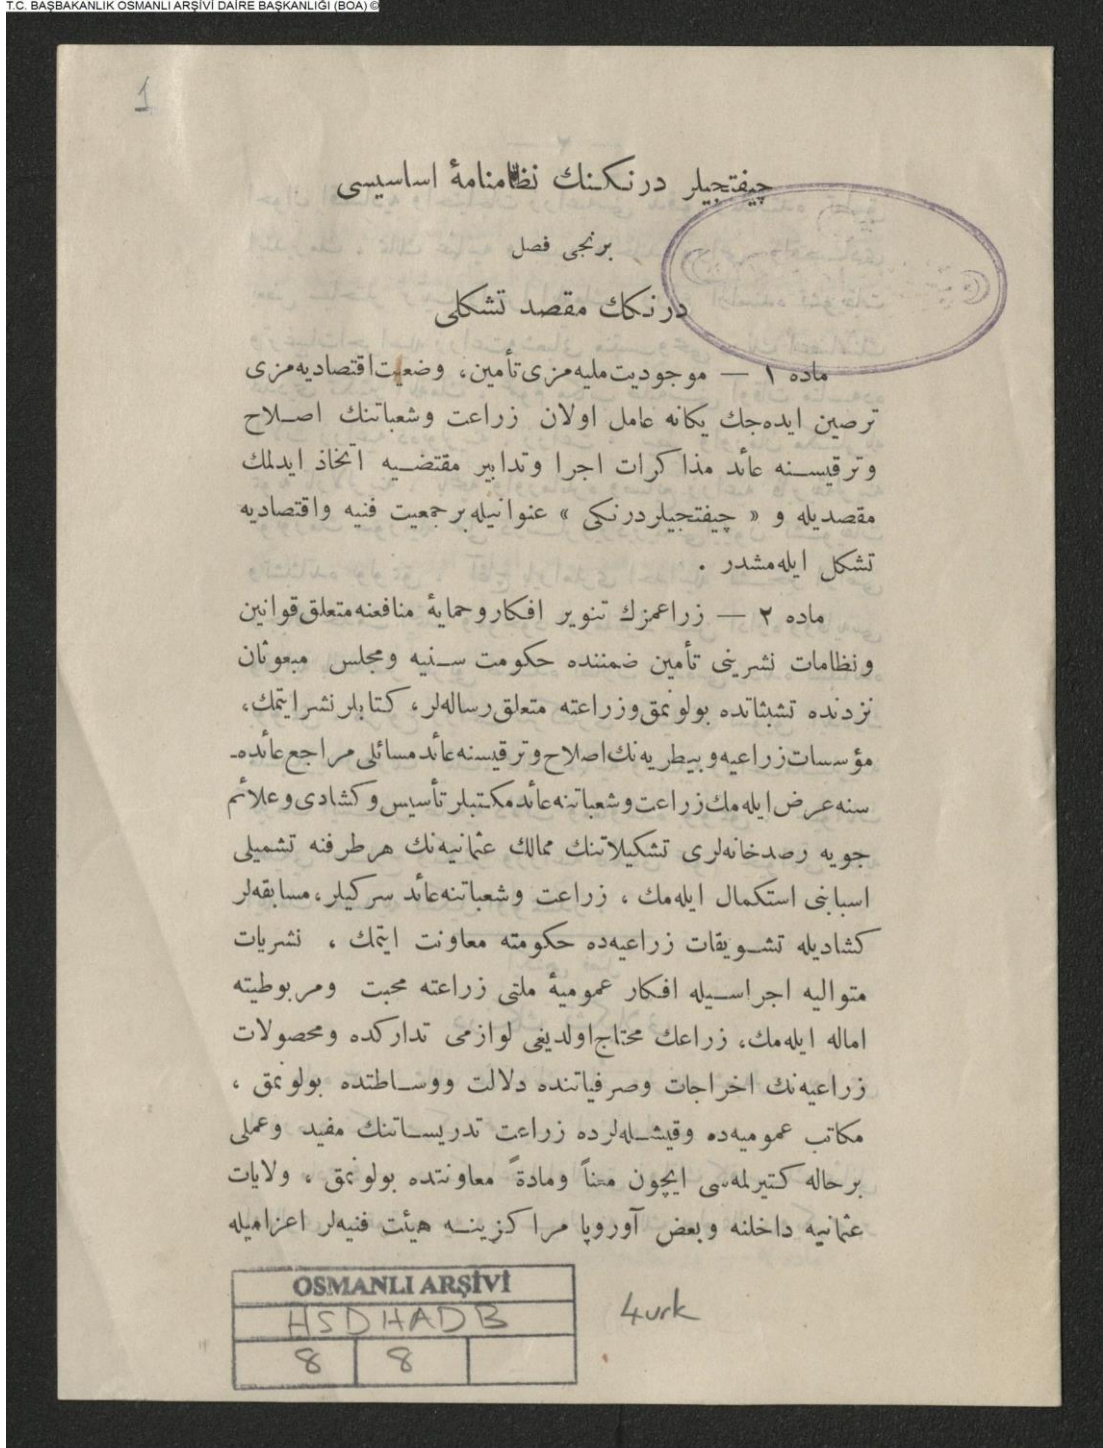 T.C. BAŞBAKANLIK OSMANLI ARŞİVİ DAİRE BAŞKANLIĞI (BOA) ©
1
چیفتجیلر درنکنك نظامنامهٔ اساسیسی
برنجی فصل
درنكك مقصد تشکلی
ماده ۱ — موجودیت ملیه مزی تأمین، وضعیت اقتصادیه مزی
ترصین ایده‌جك یكانه عامل اولان زراعت وشعباتنك اصلاح
وترقیسنه عائد مذاكرات اجرا وتدابیر مقتضیه اتخاذ ایدلمك
مقصدیله و « چیفتجیلر درنكی » عنوانیله بر جمعیت فنیه واقتصادیه
تشكل ایله‌مشدر .
ماده ۲ — زراعمزك تنویر افكار وحمایهٔ منافعنه متعلق قوانین
ونظامات نشرینی تأمین ضمننده حكومت سنیه ومجلس مبعوثان
نزدنده تشبثاتده بولونمق وزراعته متعلق رساله‌لر، كتابلر نشر ایتمك،
مؤسسات زراعیه و بیطریه‌نك اصلاح وترقیسنه عائد مسائلی مراجع عائده‌ـ
سنه عرض ایله‌مك زراعت وشعباتنه عائد مكتبلر تأسیس وكشادی وعلائم
جویه رصدخانه‌لری تشكیلاتنك ممالك عثمانیه‌نك هر طرفنه تشمیلی
اسبابنی استكمال ایله‌مك ، زراعت وشعباتنه عائد سركیلر، مسابقه‌لر
كشادیله تشویقات زراعیه‌ده حكومته معاونت ایتمك ، نشریات
متوالیه اجراسیله افكار عمومیهٔ ملتی زراعته محبت ومربوطیته
اماله ایله‌مك، زراعك محتاج اولدیغی لوازمی تداركده ومحصولات
زراعیه‌نك اخراجات وصرفیاتنده دلالت ووساطتده بولونمق ،
مكاتب عمومیه‌ده وقیشله‌لرده زراعت تدریساتنك مفید وعملی
بر حاله كتیرلمه‌سی ایچون معناً ومادةً معاونتده بولونمق ، ولایات
عثمانیه داخلنه وبعض آوروپا مراكزینه هیئت فنیه‌لر اعزامیله
OSMANLI ARŞİVİ
HSDHADB
8 8
4 vrk